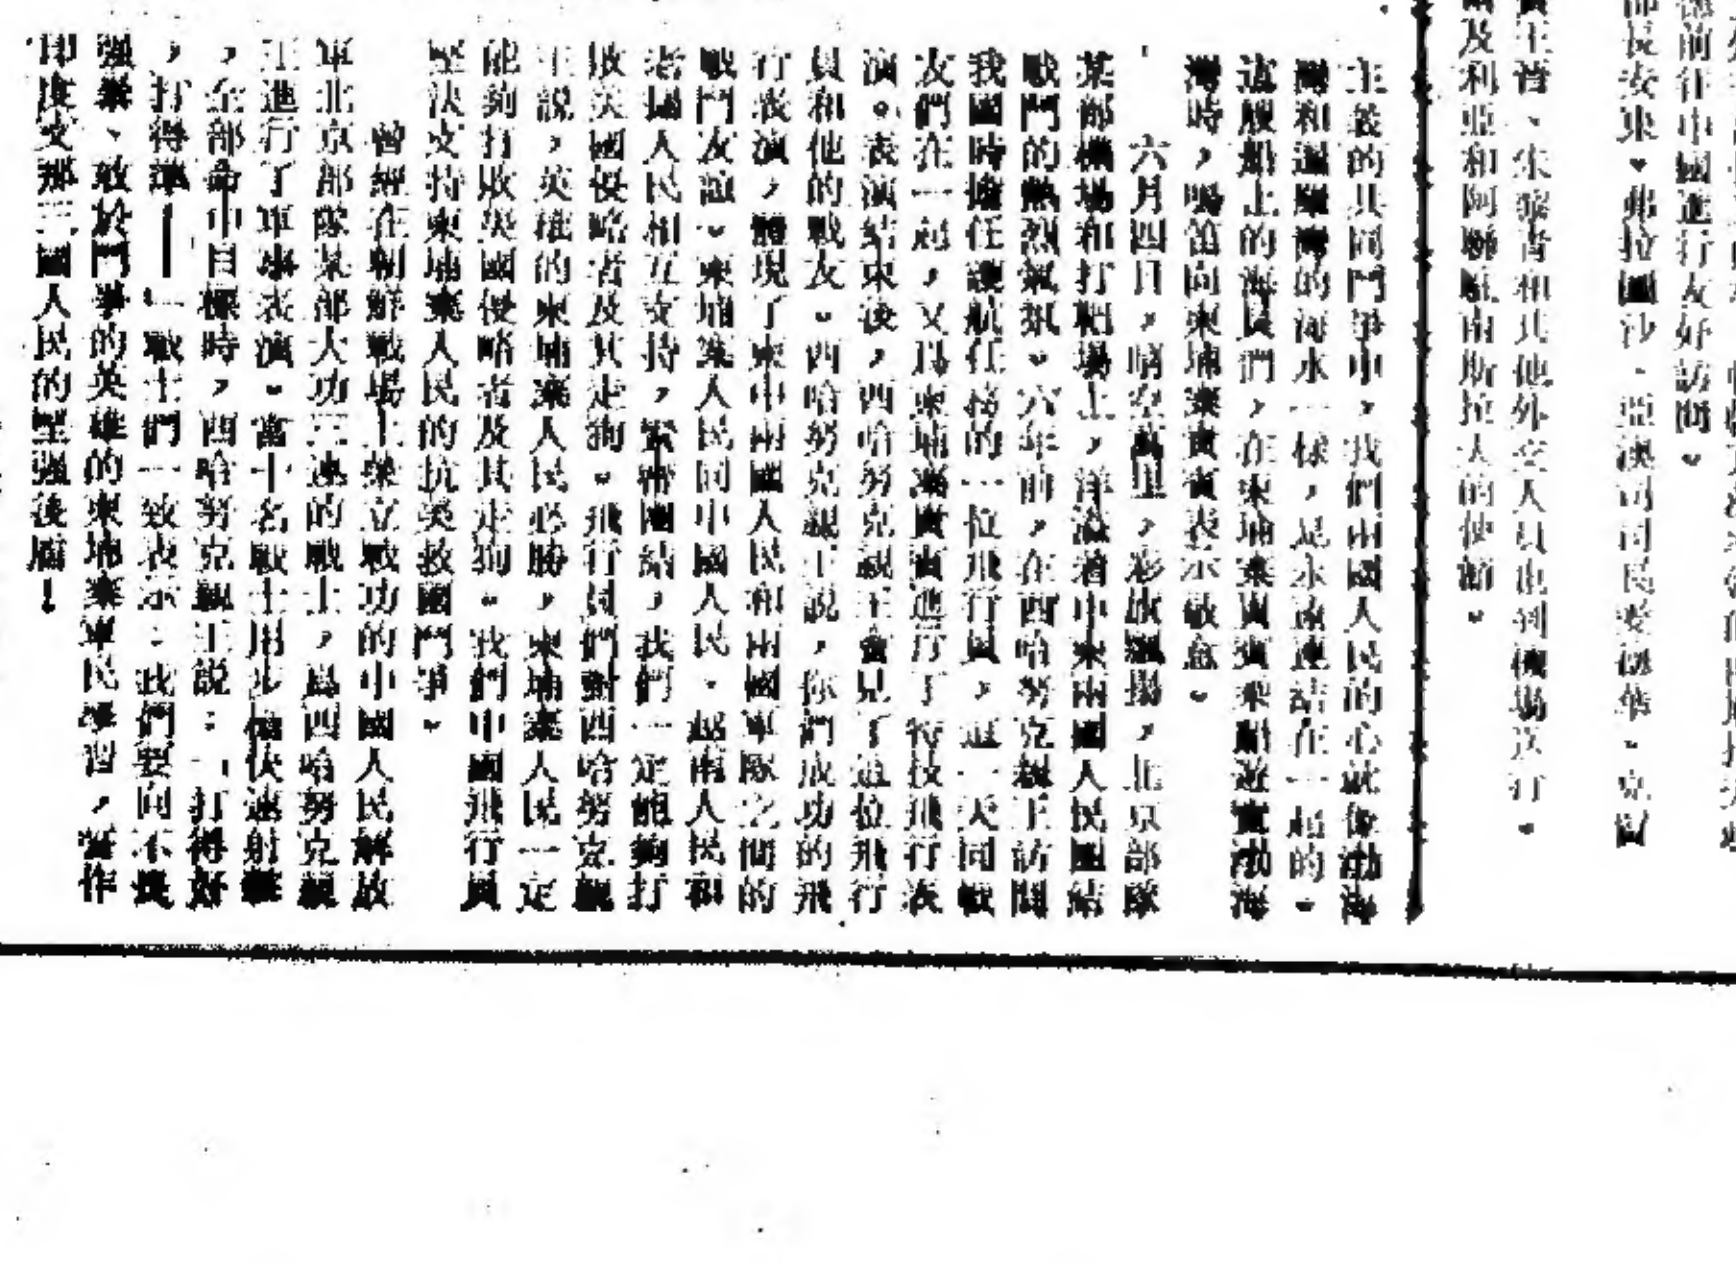 德前往中國進行友好訪問。
部長安東·弗拉圖沙、亞澳司司長
賓王酋、朱黎青和其他外交人員也到機場送行。
及利亞和阿聯駐南斯拉夫的使節。
主義的共同鬥爭中，我們兩國人民的心就像渤海
灣和暹羅灣的海水一樣，是永遠連結在一起的。
這艘船上的海員們，在柬埔寨貴賓乘船遊覽渤海
灣時，鳴笛向柬埔寨貴賓表示敬意。
六月四日，晴空萬里，彩旗飄揚，北京部隊
某部機場和打靶場上，洋溢着中柬兩國人民團結
戰鬥的熱烈氣氛。六年前，在西哈努克親王訪問
我國時擔任護航任務的一位飛行員，這一天同戰
友們在一起，又爲柬埔寨貴賓進行了特技飛行表
演。表演結束後，西哈努克親王會見了這位飛行
員和他的戰友。西哈努克親王說，你們成功的飛
行表演，體現了柬中兩國人民和兩國軍隊之間的
戰鬥友誼。柬埔寨人民同中國人民、越南人民和
老撾人民相互支持，緊密團結，我們一定能夠打
敗美國侵略者及其走狗。飛行員們對西哈努克親
王說，英雄的柬埔寨人民必勝，柬埔寨人民一定
能夠打敗美國侵略者及其走狗。我們中國飛行員
堅決支持柬埔寨人民的抗美救國鬥爭。
曾經在朝鮮戰場上榮立戰功的中國人民解放
軍北京部隊某部大功三連的戰士，爲西哈努克親
王進行了軍事表演。當十名戰士用步槍快速射擊
，全部命中目標時，西哈努克親王說：「打得好
，打得準——」戰士們一致表示：我們要向不畏
強暴、敢於鬥爭的英雄的柬埔寨軍民學習，當作
印度支那三國人民的堅強後盾！